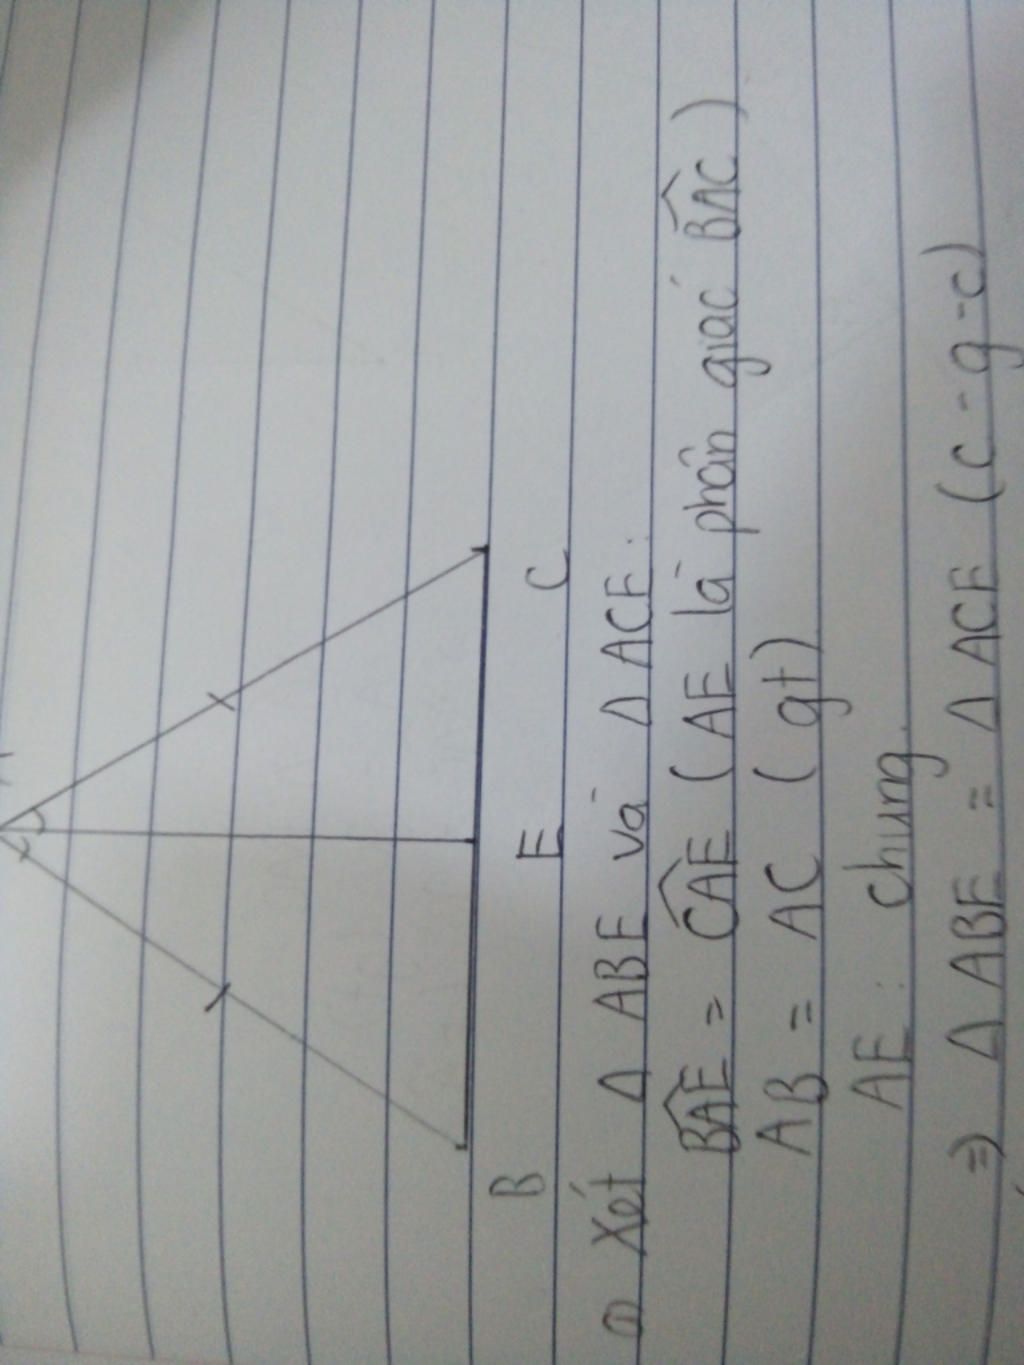 B E C
a) Xét Δ ABE và Δ ACE:
B̂AE = ĈAE (AE là phân giác B̂AC)
AB = AC (gt)
AE: chung
⇒ Δ ABE = Δ ACE (c-g-c)